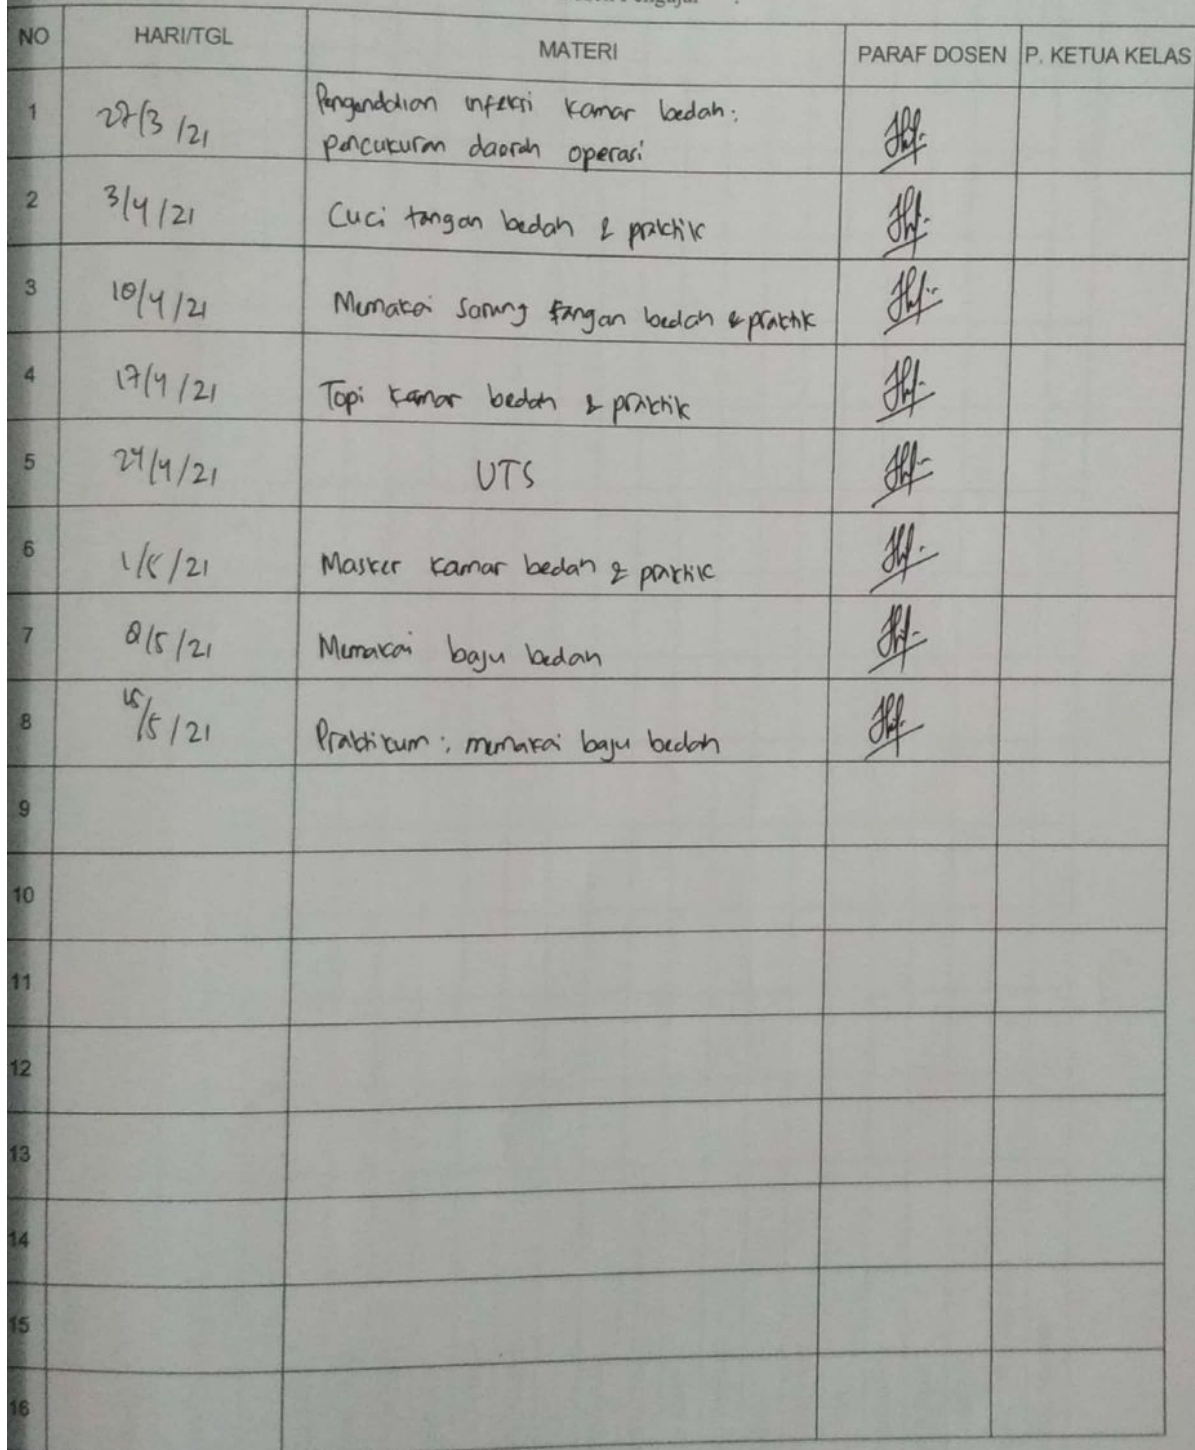 NO HARI/TGL MATERI PARAF DOSEN P. KETUA KELAS
1 27/3/21 Pengendalian infeksi kamar bedah:
pencukuran daerah operasi
2 3/4/21 Cuci tangan bedah & praktik
3 10/4/21 Memakai sarung tangan bedah & praktik
4 17/4/21 Topi kamar bedah & praktik
5 24/4/21 UTS
6 1/5/21 Masker kamar bedah & praktik
7 8/5/21 Memakai baju bedah
8 15/5/21 Praktikum : memakai baju bedah
9
10
11
12
13
14
15
16